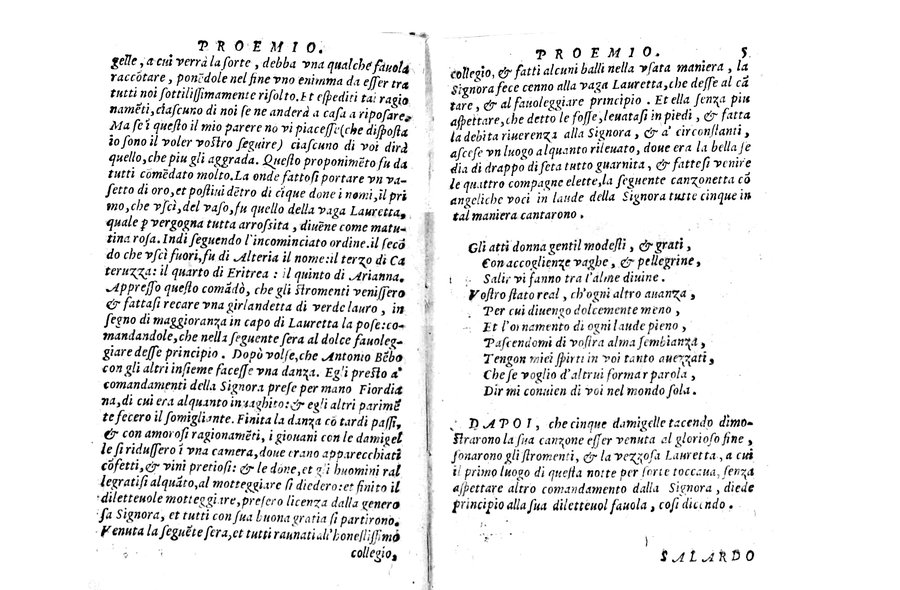 PROEMIO.
gelle, a cui verrà la sorte, debba vna qualche fauola
raccōtare, ponēdole nel fine vno enimma da esser tra
tutti noi sottilissimamente risolto. Et espediti tai ragio
namēti, ciascuno di noi se ne anderà a casa a riposare.
Ma se ī questo il mio parere no vi piacesse (che disposta
io sono il voler vostro seguire) ciascuno di voi dirà
quello, che piu gli aggrada. Questo proponimēto fu da
tutti comēdato molto. La onde fattosi portare vn va-
setto di oro, et postiui dētro di cīque done i nomi, il pri
mo, che vscì, del vaso, fu quello della vaga Lauretta,
quale p vergogna tutta arrossita, diuēne come matu-
tina rosa. Indi seguendo l'incominciato ordine. il secō
do che vscì fuori, fu di Alteria il nome: il terzo di Ca
teruzza: il quarto di Eritrea: il quinto di Arianna.
Appresso questo comādò, che gli stromenti venissero
& fattasi recare vna girlandetta di verde lauro, in
segno di maggioranza in capo di Lauretta la pose: co-
mandandole, che nella seguente sera al dolce fauoleg-
giare desse principio. Dopò volse, che Antonio Bēbo
con gli altri insieme facesse vna danza. Egli presto a'
comandamenti della Signora prese per mano Fiordia
na, di cui era alquanto inuaghito: & egli altri parimē
te fecero il somigliante. Finita la danza cō tardi passi,
& con amorosi ragionamēti, i giouani con le damigel
le si ridussero ī vna camera, doue erano apparecchiati
cōfetti, & vini pretiosi: & le done, et gli huomini ral
legratisi alquāto, al motteggiare si diedero: et finito il
diletteuole motteggiare, presero licenza dalla genero
sa Signora, et tutti con sua buona gratia si partirono.
Venuta la seguēte sera, et tutti raunati all'honestissimo
collegio,
PROEMIO. 5
collegio, & fatti alcuni balli nella vsata maniera, la
Signora fece cenno alla vaga Lauretta, che desse al cā
tare, & al fauoleggiare principio. Et ella senza piu
aspettare, che detto le fosse, leuatasi in piedi, & fatta
la debita riuerenza alla Signora, & a' circonstanti,
ascese vn luogo alquanto rileuato, doue era la bella se
dia di drappo di seta tutto guarnita, & fattesi venire
le quattro compagne elette, la seguente canzonetta cō
angeliche voci in laude della Signora tutte cinque in
tal maniera cantarono.
Gli atti donna gentil modesti, & grati,
Con accoglienze vaghe, & pellegrine,
Salir vi fanno tra l'alme diuine.
Vostro stato real, ch'ogni altro auanza,
Per cui diuengo dolcemente meno,
Et l'ornamento di ogni laude pieno,
Pascendomi di vostra alma sembianza,
Tengon miei spirti in voi tanto auezzati,
Che se voglio d'altrui formar parola,
Dir mi conuien di voi nel mondo sola.
DAPOI, che cinque damigelle tacendo dimo-
strarono la sua canzone esser venuta al glorioso fine,
sonarono gli stromenti, & la vezzosa Lauretta, a cui
il primo luogo di questa notte per sorte toccaua, senza
aspettare altro comandamento dalla Signora, diede
principio alla sua diletteuol fauola, così dicendo.
SALARDO